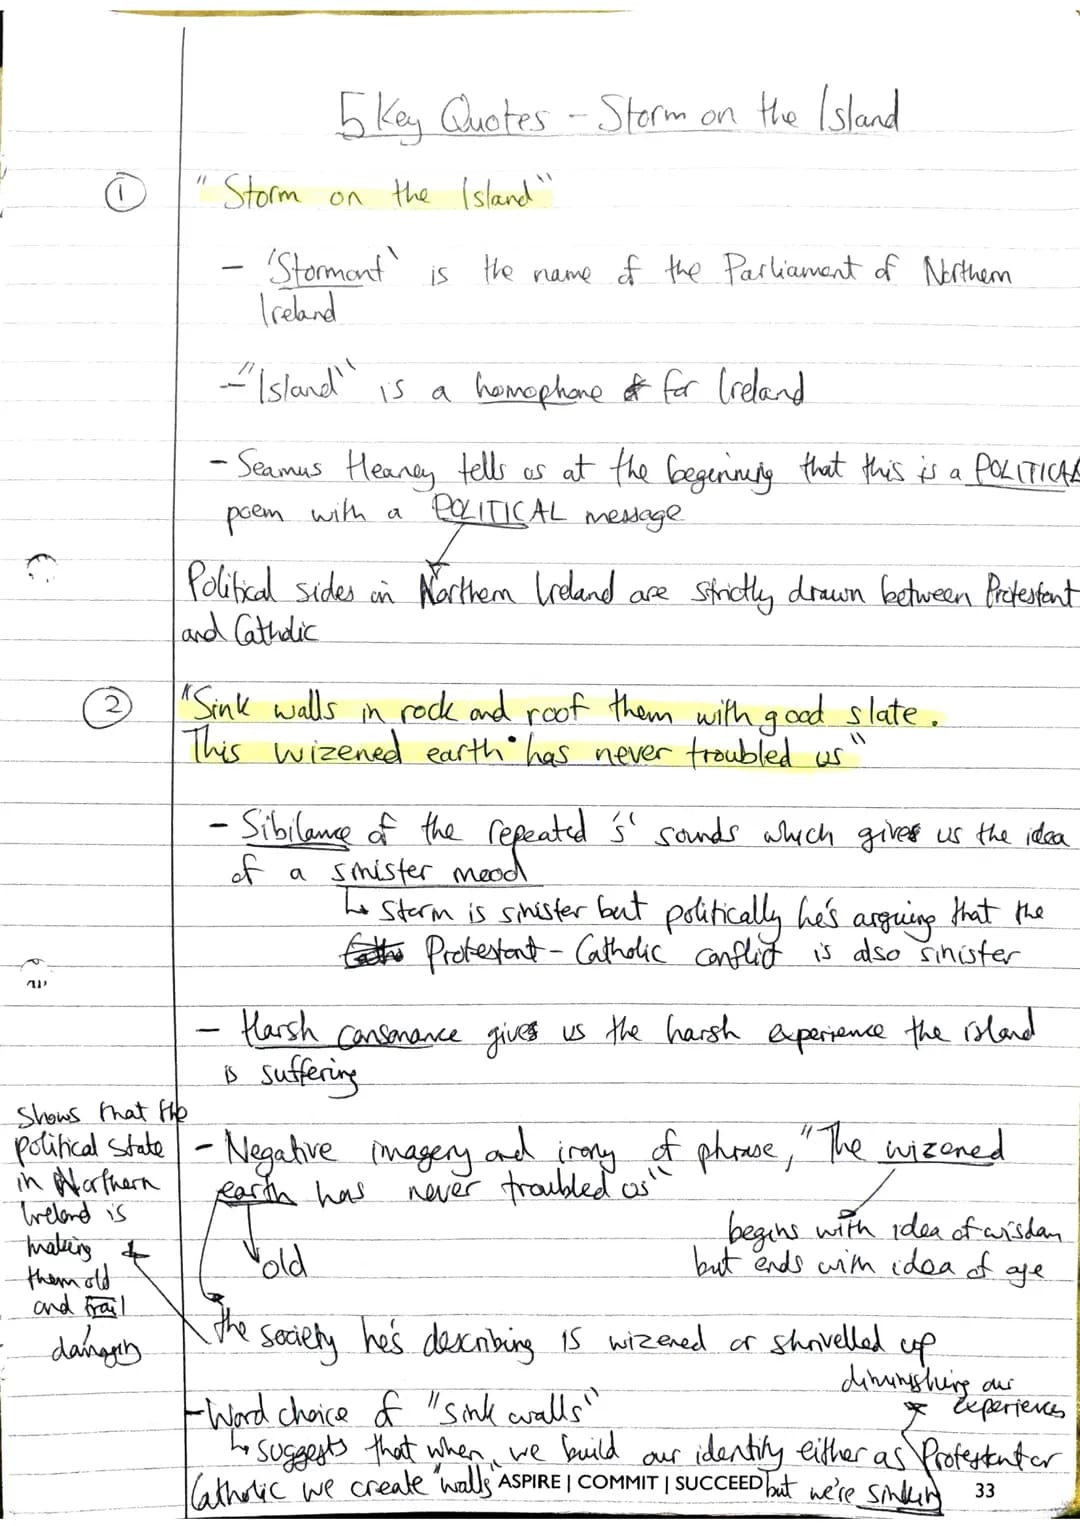 5 Key Quotes - Storm on the Island
① "Storm on the Island"
- 'Stormont' is the name of the Parliament of Northern
Ireland
- "Island" is a homophone for Ireland
- Seamus Heaney tells us at the beginning that this is a POLITICAL
poem with a POLITICAL message
Political sides in Northern Ireland are strictly drawn between Protestant
and Catholic
② "Sink walls in rock and roof them with good slate.
This wizened earth has never troubled us"
- Sibilance of the repeated 's' sounds which gives us the idea
of a sinister mood
↳ Storm is sinister but politically he's arguing that the
Protestant - Catholic conflict is also sinister
- Harsh consonance gives us the harsh experience the island
is suffering
- Negative imagery and irony of phrase, "The wizened
earth has never troubled us"
begins with idea of wisdom
but ends with idea of age
old
the society he's describing is wizened or shrivelled up
Shows that the
political state
in Northern
Ireland is
making
them old
and frail
- Word choice of "sink walls"
↳ suggests that when we build our identity either as Protestant or
Catholic we create "walls" but we're sinking
diminishing our
experiences
ASPIRE | COMMIT | SUCCEED
33